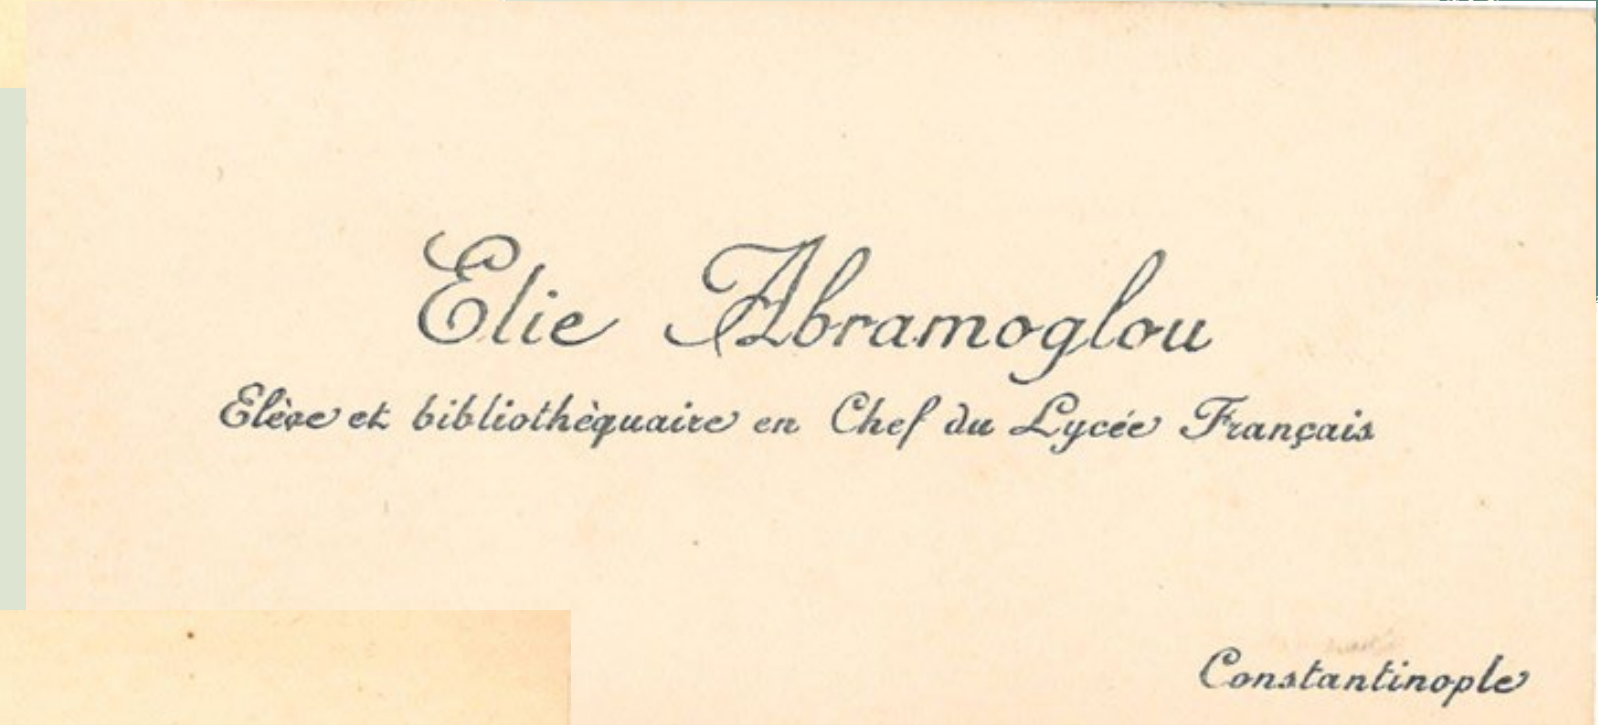 Elie Abramoglou
Elève et bibliothèquaire en Chef du Lycée Français
Constantinople